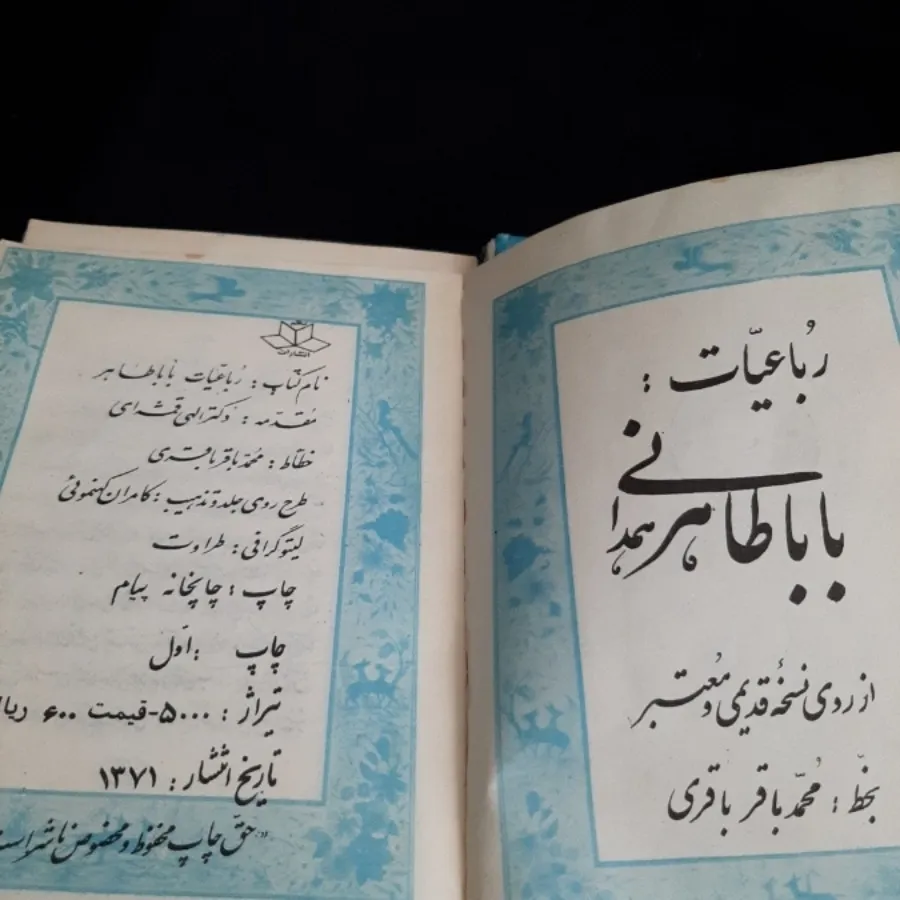 رُباعیّات :
باباطاهر همدانی
از روی نسخهٔ قدیمی و مُعتبر
بخطّ : مُحمّد باقر باقری
انتشارات
نام کتاب : رباعیّات باباطاهر
مُقدّمه : دکتر الهی قمشه‌ای
خطّاط : محمّد باقر باقری
طرح روی جلد و تذهیب : کامران کهنموئی
لیتوگرافی : طراوت
چاپ : چاپخانه پیام
چاپ : اوّل
تیراژ : ۵۰۰۰-قیمت ۶۰۰ ریال
تاریخ انتشار : ۱۳۷۱
«حقّ چاپ محفوظ و مخصوص ناشر است